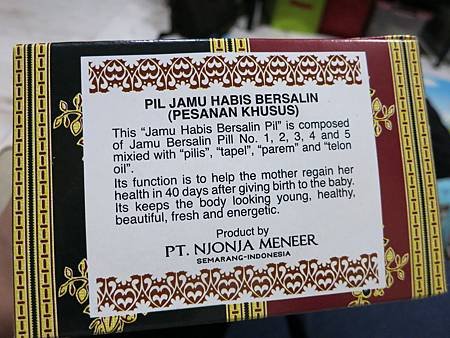 PIL JAMU HABIS BERSALIN
(PESANAN KHUSUS)
This "Jamu Habis Bersalin Pil" is composed
of Jamu Bersalin Pill No. 1, 2, 3, 4 and 5
mixied with "pilis", "tapel", "parem" and "telon
oil".
Its function is to help the mother regain her
health in 40 days after giving birth to the baby.
Its keeps the body looking young, healthy,
beautiful, fresh and energetic.
Product by
PT. NJONJA MENEER
SEMARANG-INDONESIA